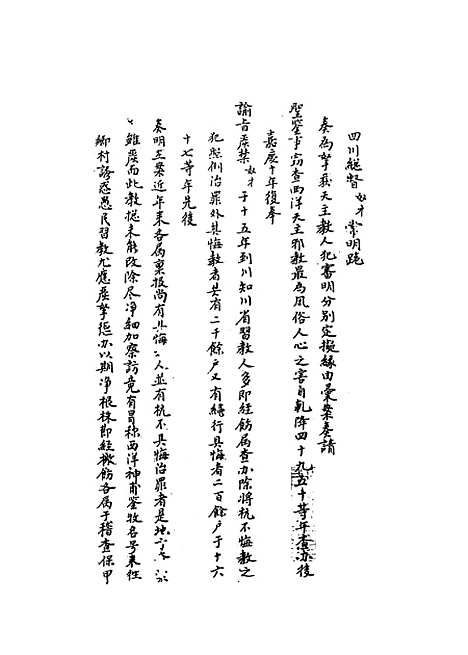 四川總督奴才常明跪
奏為拏獲天主教人犯審明分別定擬緣由彙案奏請
聖鑒事竊查西洋天主邪教最為風俗人心之害自乾隆四十九五十等年查办後
嘉慶十年復奉
諭旨嚴禁奴才于十五年到川知川省習教人多即經飭属查办除將抗不悔教之
犯照例治罪外其悔教者共有二千餘户又有續行具悔者二百餘户于十六
十七等年先後
奏明在案近年来各属禀报尚有具悔之人並有抗不具悔治罪者是地方
雖嚴而此教提未能改除尽净細加察訪竟有冒称西洋神甫鉴牧各号来往
鄉村誘惑愚民習教尤應嚴拏惩办以期净根株即經檄飭各属于稽查保甲